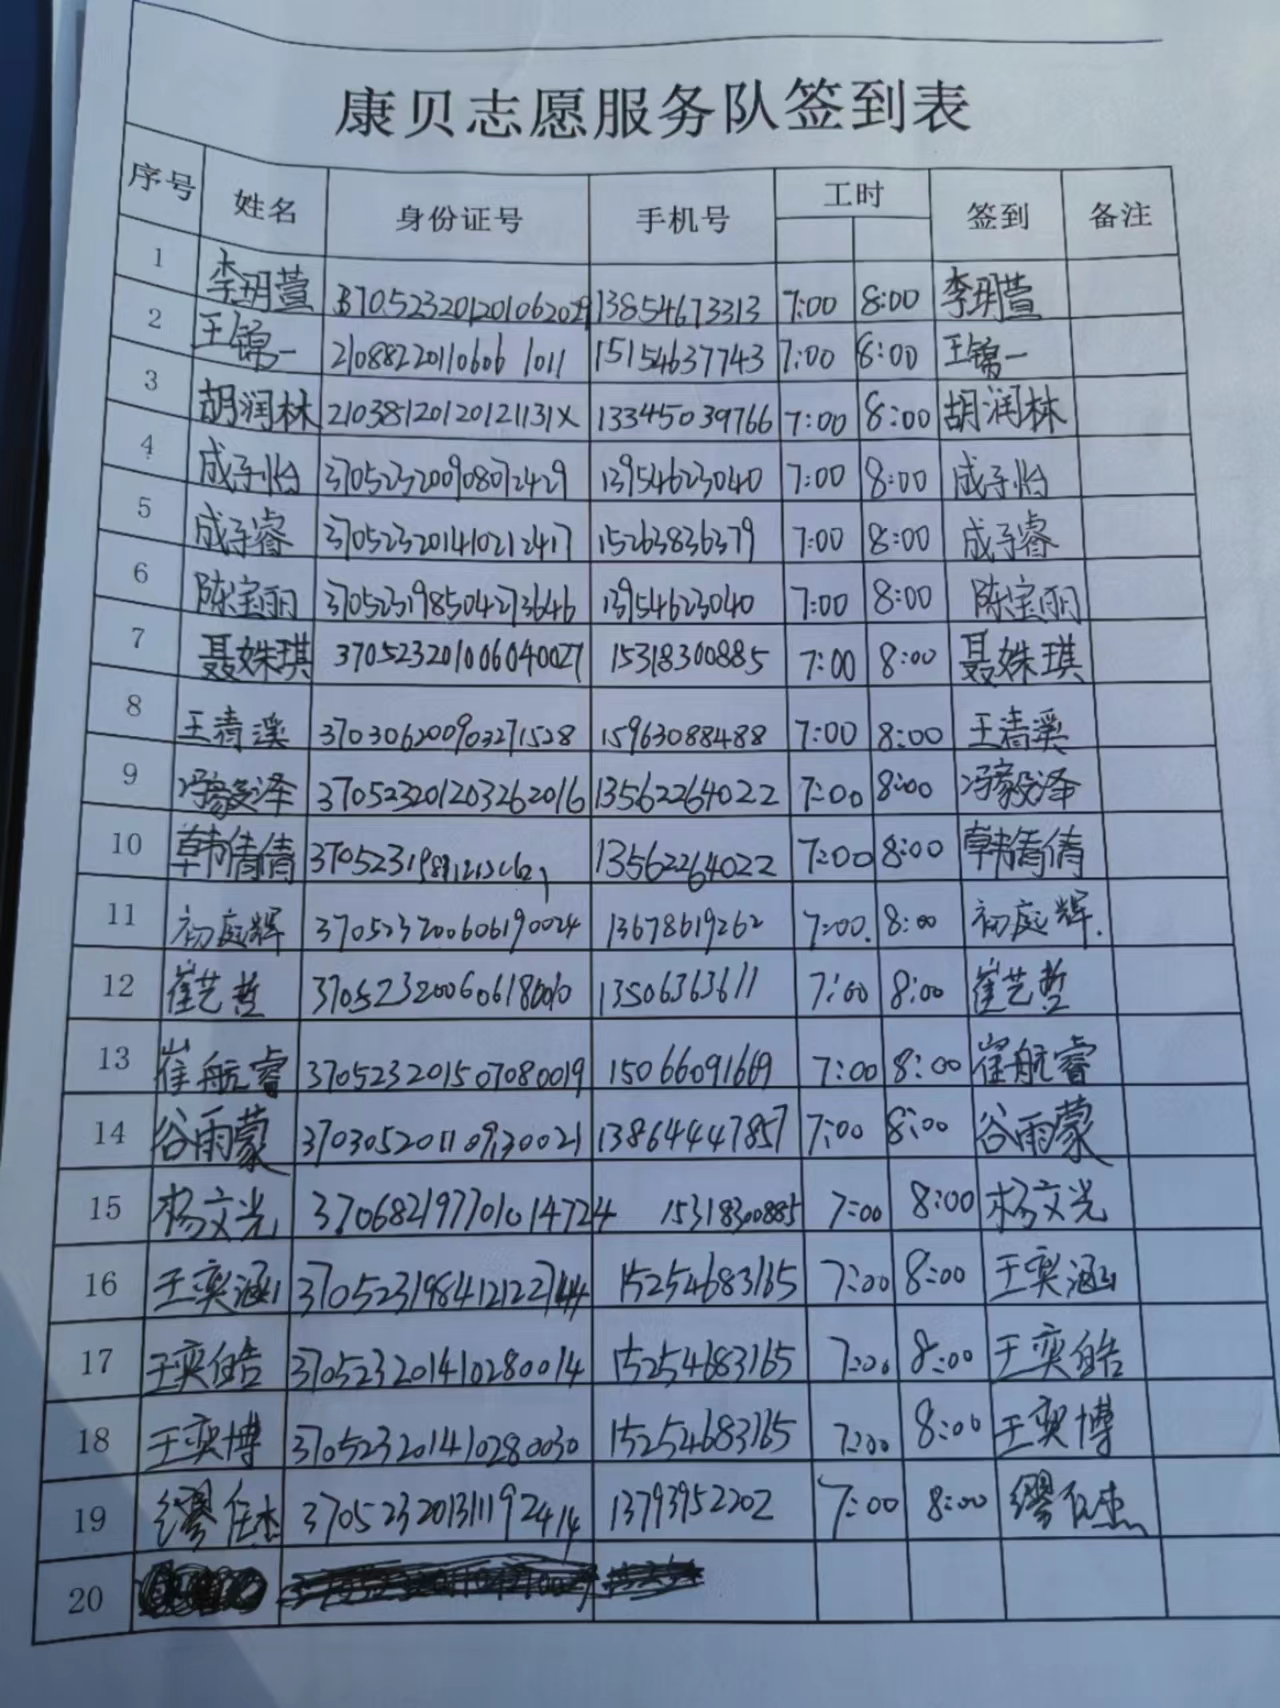 康贝志愿服务队签到表
序号 姓名 身份证号 手机号 工时 签到 备注
1 李玥萱 370523201201062029 13854673313 7:00 8:00 李玥萱
2 王锦一 210882201106061011 15154637743 7:00 8:00 王锦一
3 胡润林 21038120120121131X 13345039766 7:00 8:00 胡润林
4 成子怡 370523200908072429 13954623040 7:00 8:00 成子怡
5 成子睿 370523201410212417 15263836379 7:00 8:00 成子睿
6 陈宝丽 370523198504273646 13954623040 7:00 8:00 陈宝丽
7 聂姝琪 370523201006040027 15318300885 7:00 8:00 聂姝琪
8 王清溪 370306200903271528 15963088488 7:00 8:00 王清溪
9 冯毅泽 370523201203262016 13562264022 7:00 8:00 冯毅泽
10 韩倩倩 13562264022 7:00 8:00 韩倩倩
11 初庭辉 370523200606190024 13678619262 7:00 8:00 初庭辉
12 崔艺哲 13506363611 7:00 8:00 崔艺哲
13 崔航睿 370523201507080019 15066091669 7:00 8:00 崔航睿
14 谷雨蒙 370305201109130021 13864447857 7:00 8:00 谷雨蒙
15 杨文光 370682197701014724 15318300885 7:00 8:00 杨文光
16 王奕涵 15254683165 7:00 8:00 王奕涵
17 王奕皓 370523201410280014 15254683165 7:00 8:00 王奕皓
18 王奕博 370523201410280030 15254683165 7:00 8:00 王奕博
19 缪任杰 370523201311192414 13793952202 7:00 8:00 缪任杰
20